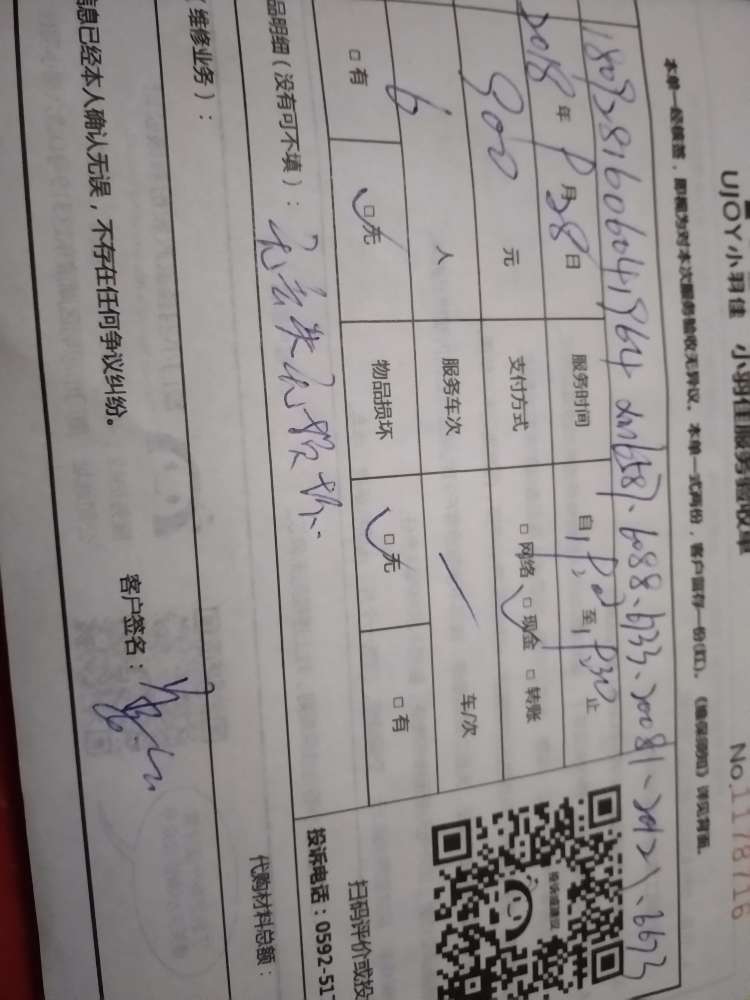 UJOY小羽佳 小羽佳服务验收单
No.1178716
本单一经核签，即视为对本次服务验收无异议。本单一式两份，客户留存一份(红)。《维保须知》详见背面。
6088、6733、20081、
2018年 月28日 服务时间 自 至 止
900 元 支付方式 □网络 □现金 □转账
6 人 服务车次 车/次
□有 □无 物品损坏 □无 □有
品明细（没有可不填）：无丢失无损坏
投诉或建议
扫码评价或投
投诉电话：0592-517
维修业务）：
代购材料总额：
信息已经本人确认无误，不存在任何争议纠纷。 客户签名：